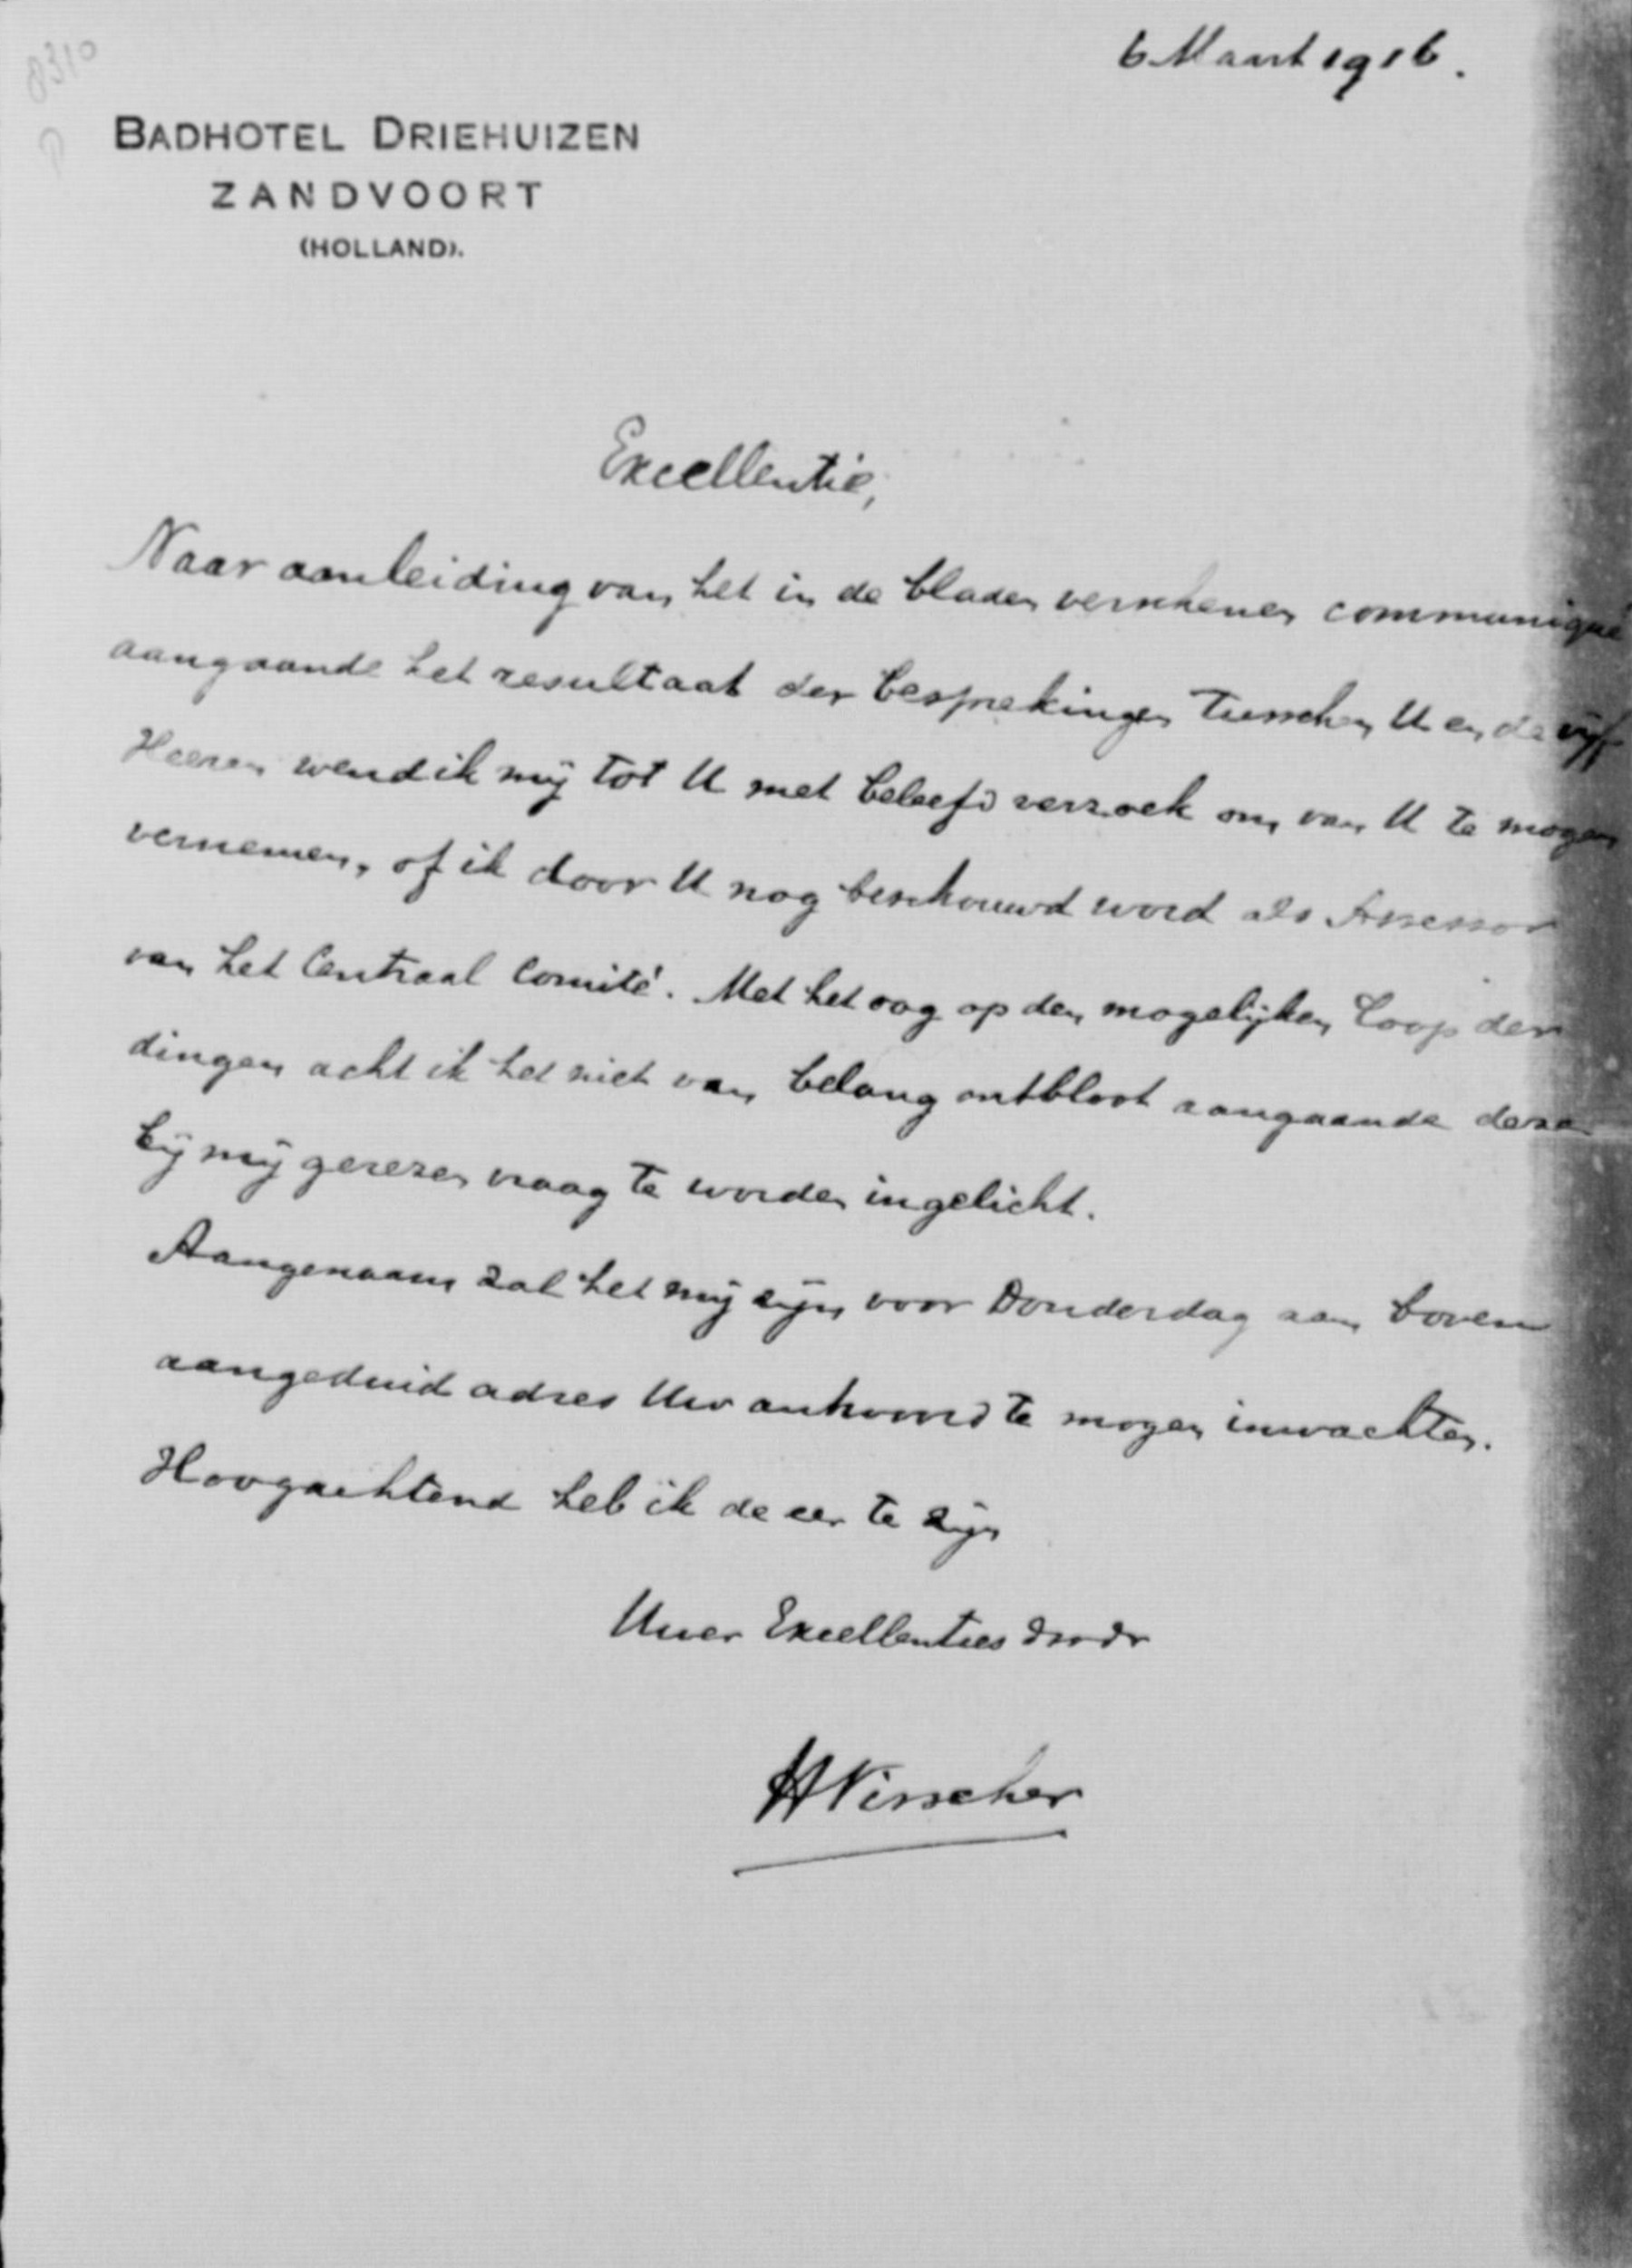 8310
6 Maart 1916.
BADHOTEL DRIEHUIZEN
ZANDVOORT
(HOLLAND).
Excellentie,
Naar aanleiding van het in de bladen verschenen communiqué
aangaande het resultaat der besprekingen tusschen U en de vijf
Heeren wend ik mij tot U met beleefd verzoek om van U te mogen
vernemen, of ik door U nog beschouwd word als Assessor
van het Centraal Comité. Met het oog op den mogelijken loop der
dingen acht ik het niet van belang ontbloot aangaande deze
bij mij gerezen vraag te worden ingelicht.
Aangenaam zal het mij zijn voor Donderdag aan boven
aangeduid adres Uw antwoord te mogen inwachten.
Hoogachtend heb ik de eer te zijn
Uwer Excellenties dwdr
HVisscher